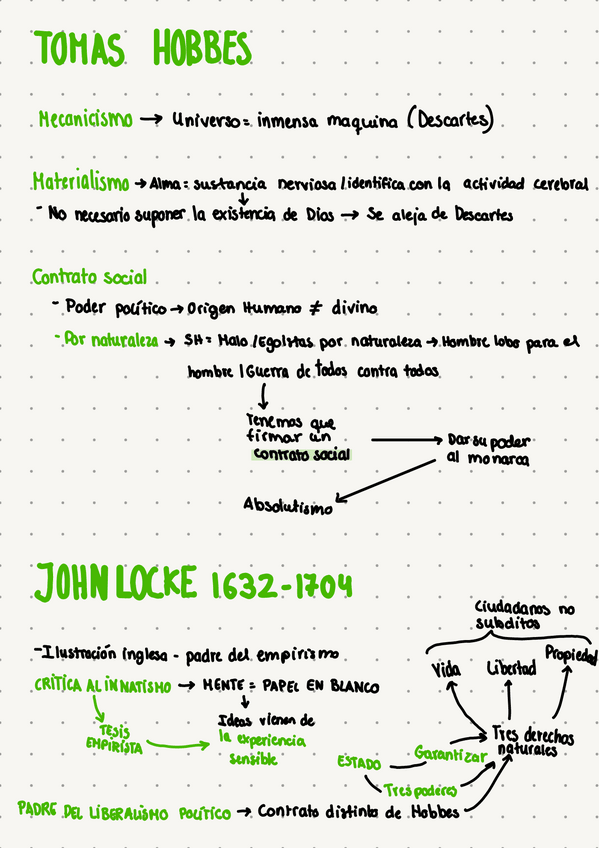 TOMAS HOBBES
Mecanicismo → Universo = inmensa maquina (Descartes)
Materialismo → Alma = sustancia nerviosa / identifica con la actividad cerebral
- No necesario suponer la existencia de Dios → Se aleja de Descartes
Contrato social
- Poder político → Origen Humano ≠ divino
- Por naturaleza → SH = Malo / Egoistas por naturaleza → Hombre lobo para el
hombre | Guerra de todos contra todos
Tenemos que
firmar un
contrato social
Dar su poder
al monarca
Absolutismo
JOHN LOCKE 1632-1704
Ciudadanos no
subditos
- Ilustración inglesa - padre del empirismo
Vida Libertad Propiedad
CRÍTICA AL INNATISMO → MENTE = PAPEL EN BLANCO
TESIS
EMPIRISTA
Ideas vienen de
la experiencia
sensible
Tres derechos
naturales
ESTADO Garantizar
Tres poderes
PADRE DEL LIBERALISMO POLÍTICO → Contrato distinto de Hobbes